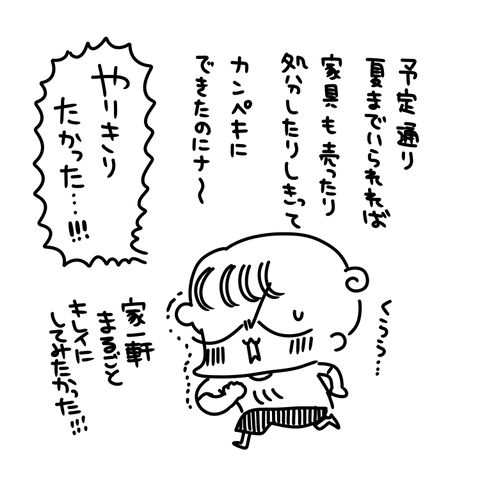 予定通り
夏までいられれば
家具も売ったり
処分したりしきって
カンペキに
できたのにナ〜
やりきり
たかった…!!!
くうう…
家一軒
まるごと
キレイに
してみたかった!!!